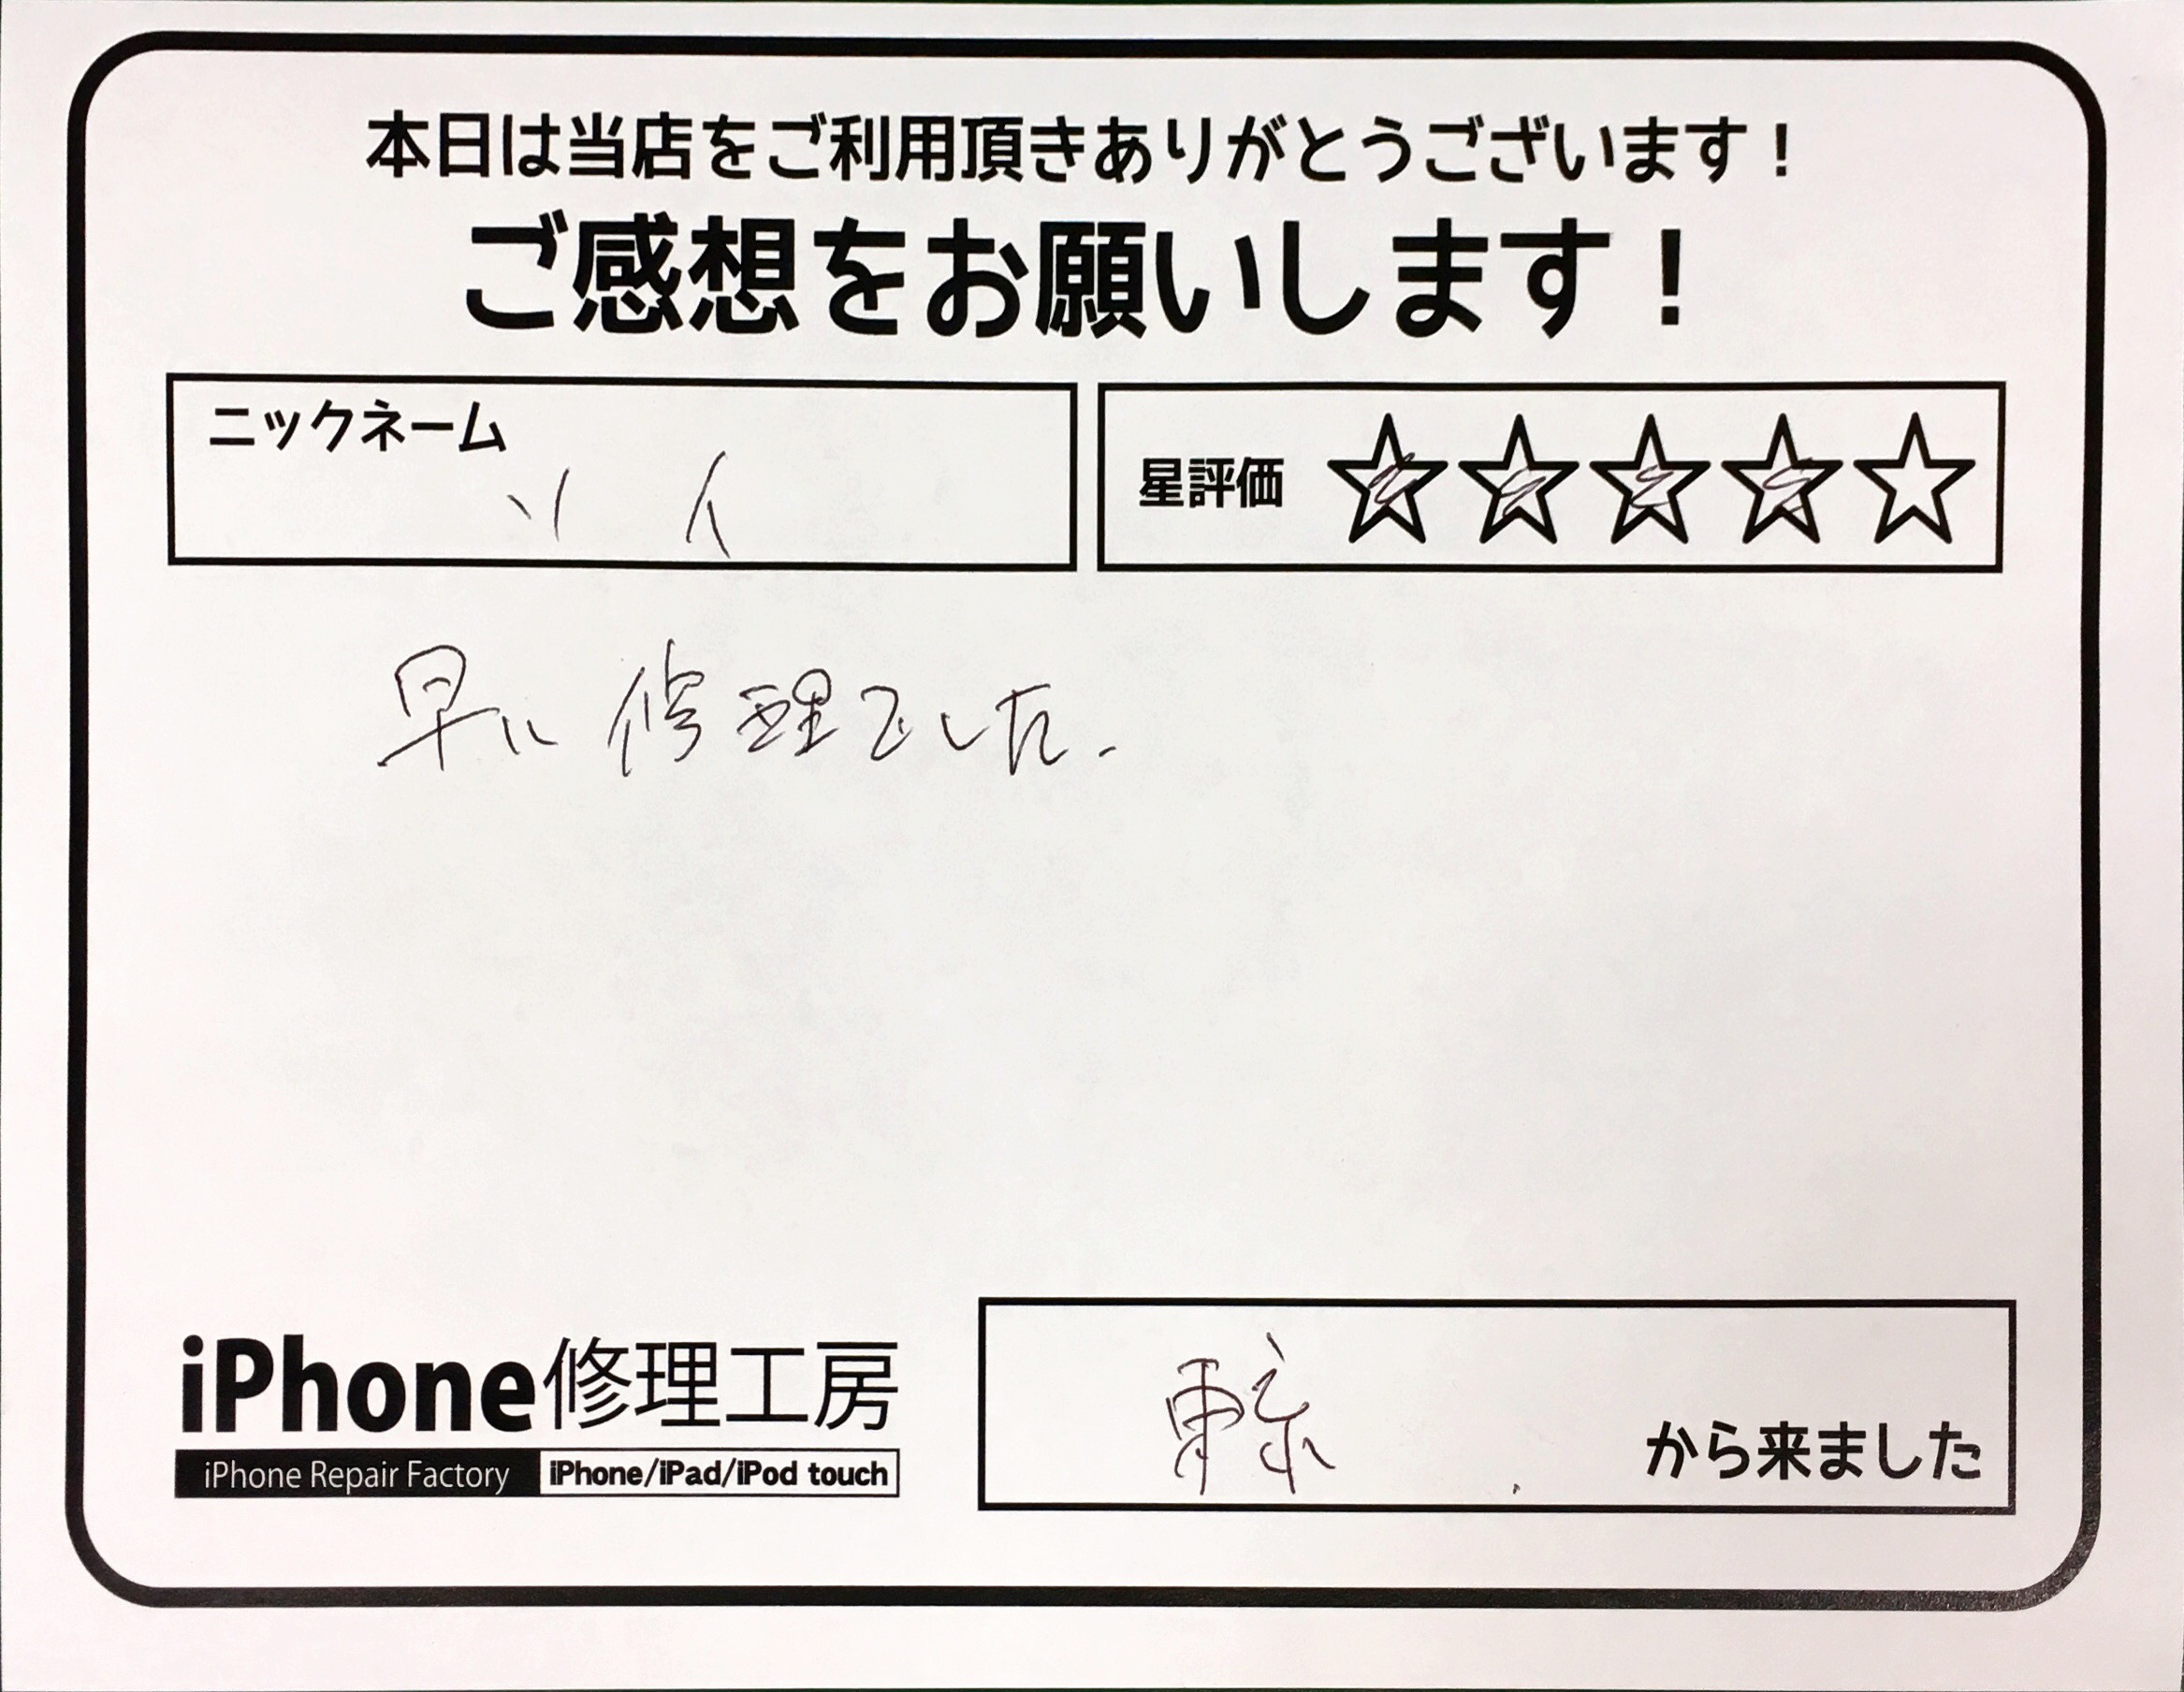 本日は当店をご利用頂きありがとうございます！
ご感想をお願いします！
ニックネーム
ソイ
星評価 ☆☆☆☆☆
早い修理でした.
iPhone修理工房
iPhone Repair Factory iPhone/iPad/iPod touch
東京 から来ました